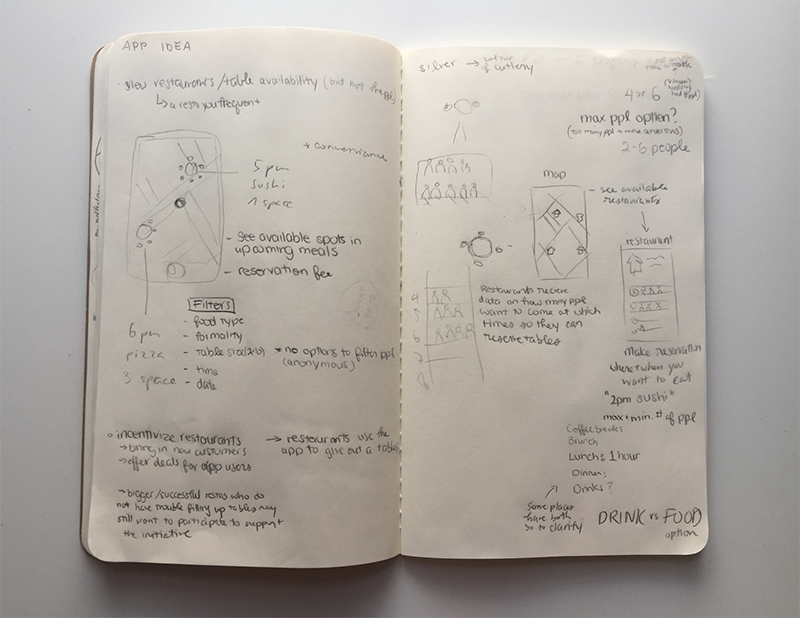 APP IDEA
restaurants/table availability (but not the ppl)
↳ a resto you frequent
* convenience
5 pm
sushi
1 space
- see available spots in
upcoming meals
- reservation fee
Filters
- food type
- formality
- table size
- time
- date
* no options to filter ppl
(anonymous)
6 pm
pizza
3 space
o incentivize restaurants
→ bring in new customers
→ offer deals for app users
→ restaurants use the
app to give out a table
→ bigger/successful restos who do
not have trouble filling up tables may
still want to participate to support
the initiative
silver → 
of cutlery
4 or 6
max ppl option?
(too many ppl = more anxious)
2-6 people
map
- see available
restaurants
restaurant
4
5
6
7
8
Restaurants receive
data on how many ppl
want to come at which
times so they can
reserve tables
make reservation
where + when you
want to eat
"2pm sushi"
max + min. # of ppl
Coffee breaks
Brunch
Lunch: 1 hour
Dinner:
Drinks?
Some places
have both
so to clarify
DRINK vs FOOD
option